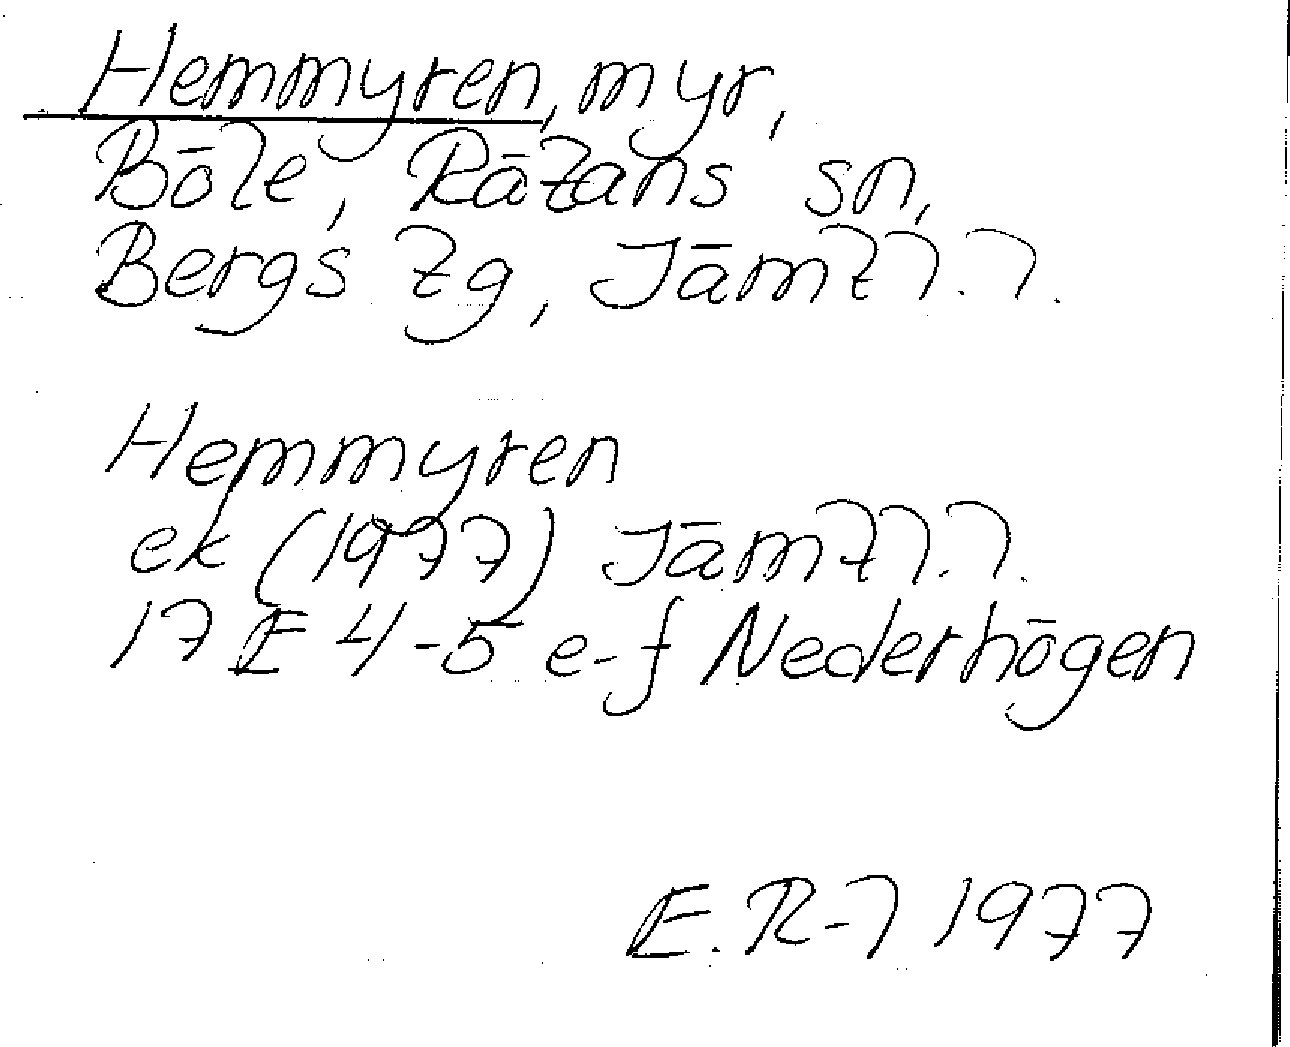 Hemmyren, myr,
Böle, Rätans sn,
Bergs tg, Jämtl. l.
Hemmyren
ek (1977) Jämtl. l.
17 E 4-5 e-f Nederhögen
E. R-l 1977